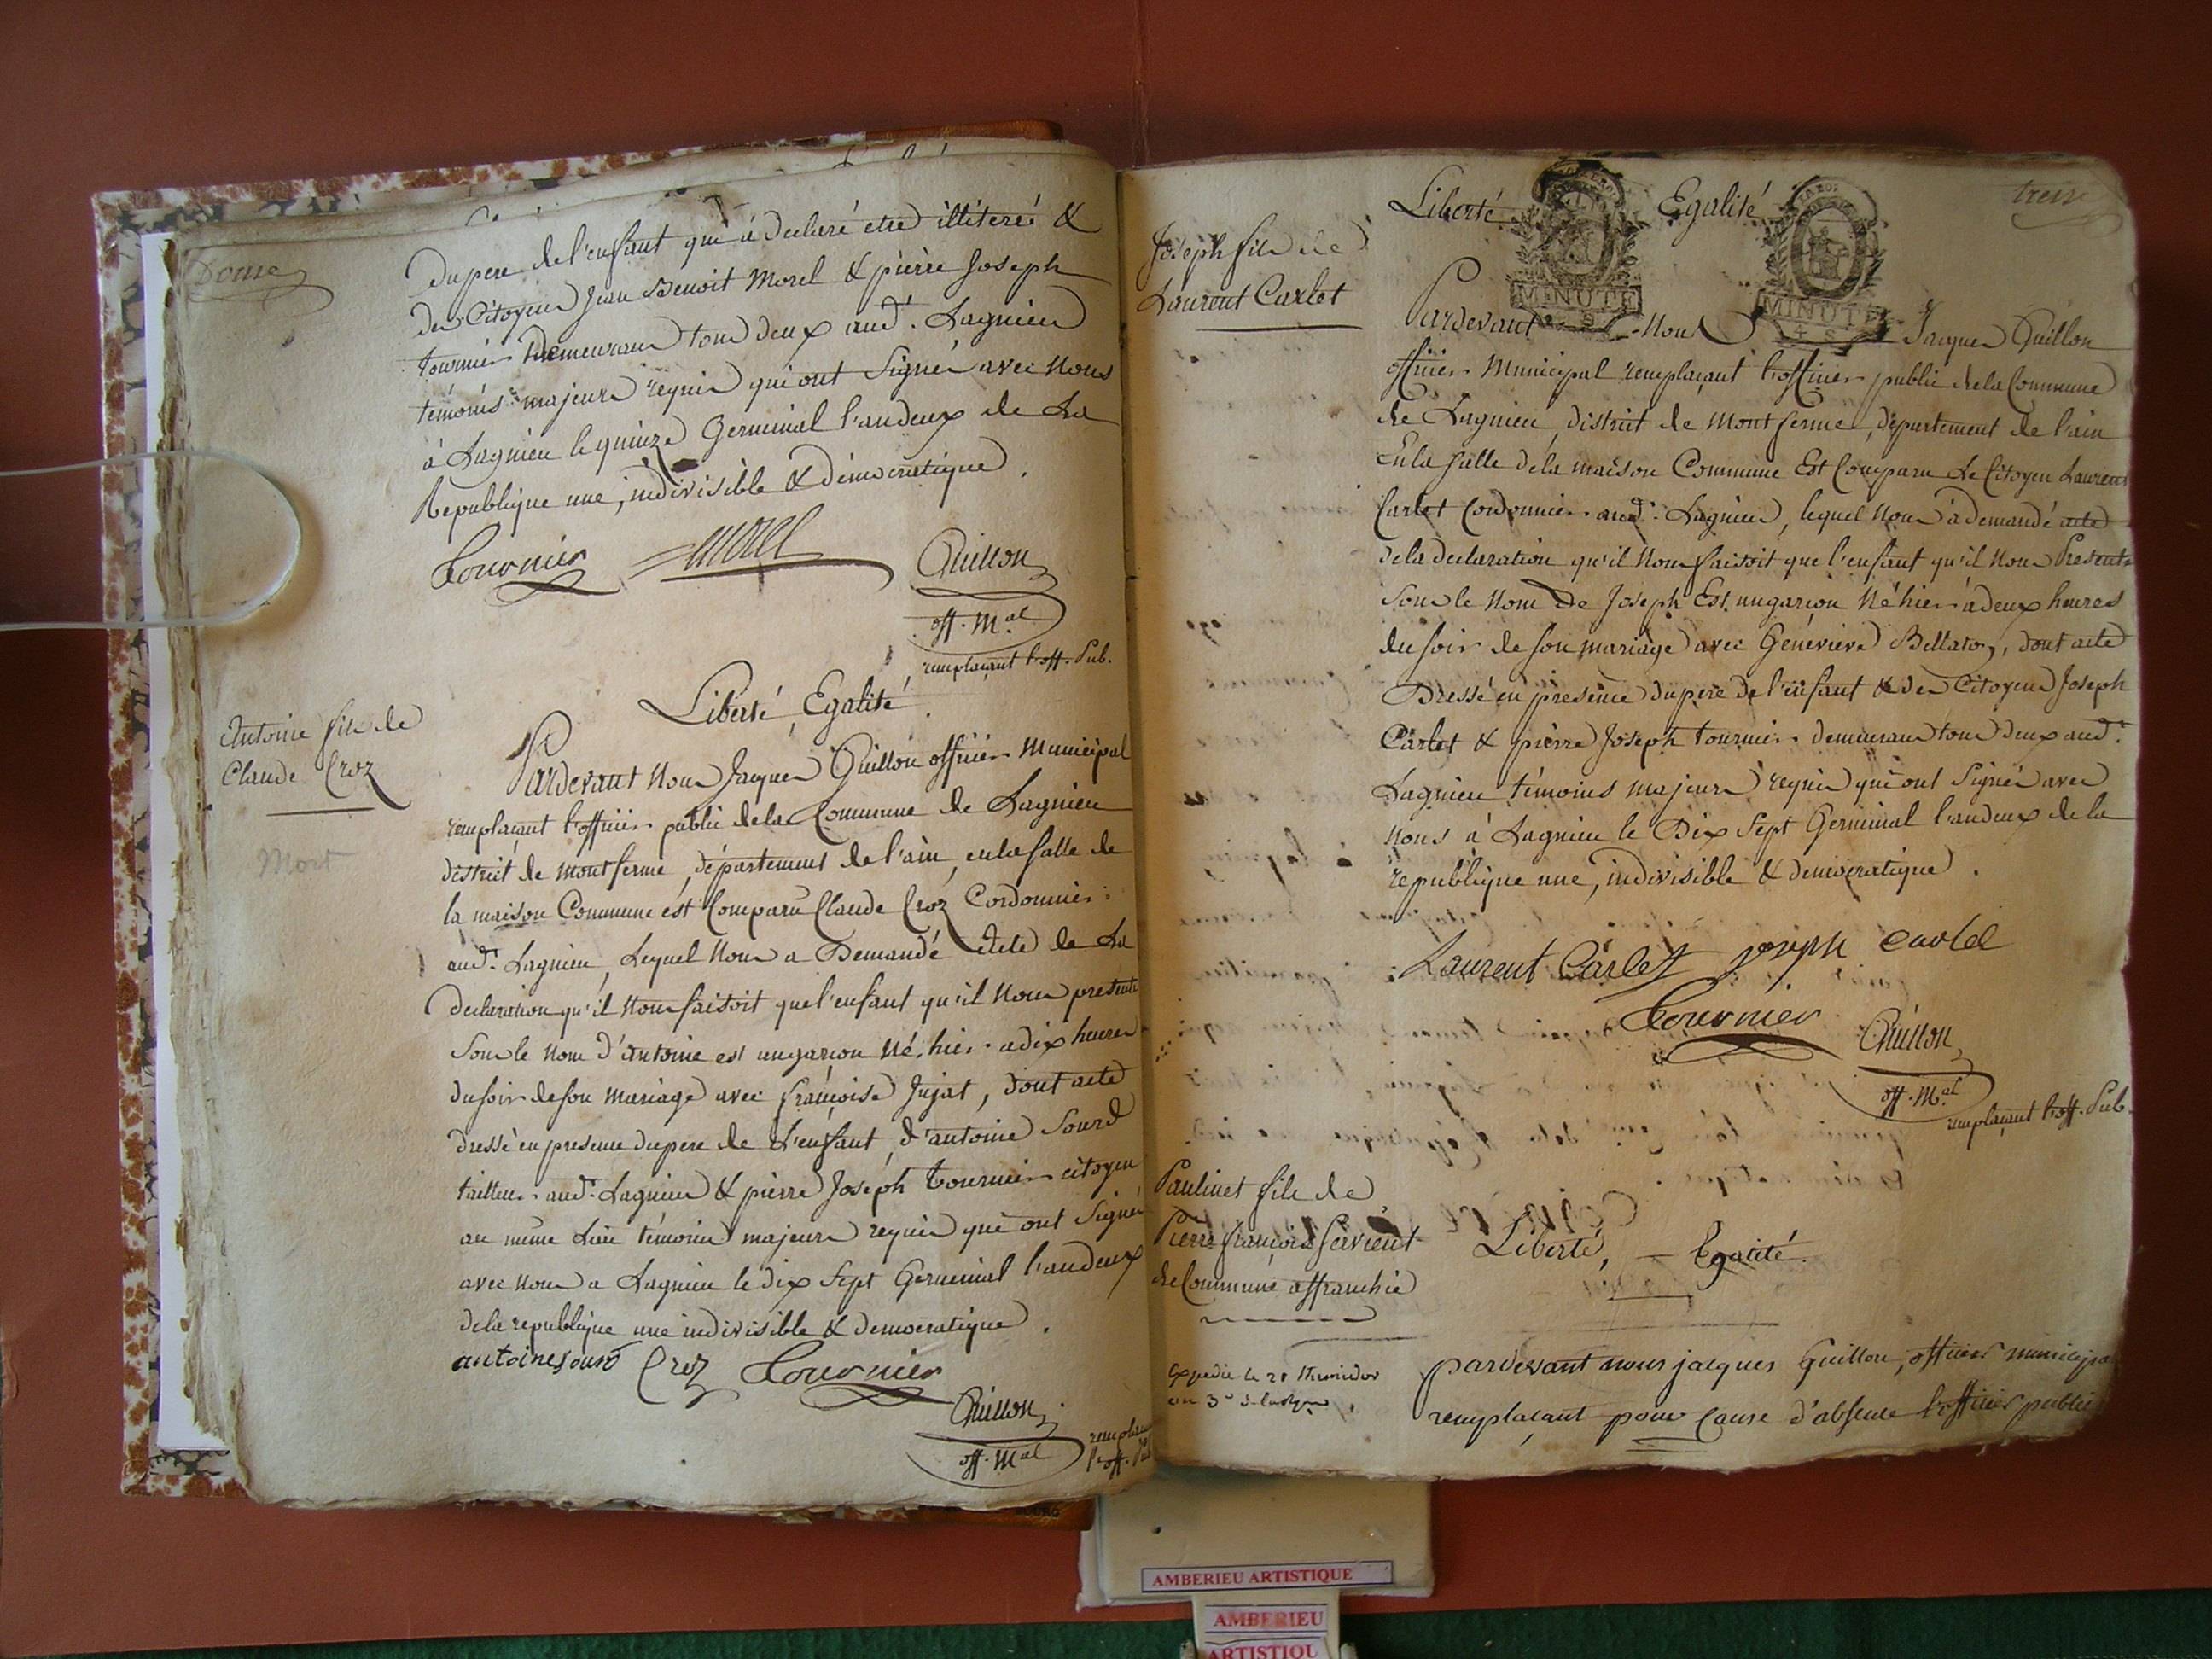 Douse
du pere de l'enfant qui à declaré etre illiteré &
des Citoyens Jean Benoit Morel & pierre Joseph
tournier demeurans tous deux aud.t Lagnieu
témoins majeurs requis qui ont Signés avec Nous
à Lagnieu le quinze Germinal l'an deux de La
Republique une, indivisible & démocratique.
Tournier Morel Quillon
off. M.al
remplaçant l'off. Pub.
Liberté, Egalité
Antoine fils de
Claude Croz
Mort
Pardevant Nous Jacques Quillon officier Municipal
remplaçant l'officier public de la Commune de Lagnieu
district de montferme, département de l'ain, en la salle de
la maison Commune est Comparu Claude Croz Cordonnier
aud.t Lagnieu, Lequel Nous a Demandé Acte de La
declaration qu'il Nous faisoit que l'enfant qu'il Nous presente
Sous le Nom d'antoine est un garcon Né hier a dix heures
du soir de son mariage avec françoise Jujat, dont acte
dressé en presence du pere de L'enfant, d'antoine Sourd
tailleur aud.t Lagnieu & pierre Joseph tournier citoyen
au meme Lieu témoins majeurs requis qui ont Signés
avec Nous a Lagnieu le dix Sept Germinal l'an deux
de la republique une indivisible & democratique.
antoine sourd Croz Tournier
Quillon
off. M.al
remplaçant
l'off. Pub
treize
Liberté Egalité
MINUTE
MINUTE
4 S
Joseph fils de
Laurent Carlet
Pardevant Nous Jacques Quillon
officier Municipal remplaçant l'officier public de la Commune
de Lagnieu, district de montferme, département de l'ain
En la salle de la maison Commune Est Comparu Le Citoyen Laurent
Carlet Cordonnier aud.t Lagnieu, lequel Nous à demandé acte
de la declaration qu'il Nous faisoit que l'enfant qu'il Nous Presente
Sous le Nom de Joseph Est un garcon Né hier à deux heures
du soir de son mariage avec Génevieve Bellaton, dont acte
Dressé en presence du pere de l'enfant & des Citoyens Joseph
Carlet & pierre Joseph tournier demeurans tous deux aud.t
Lagnieu témoins majeurs requis qui ont Signés avec
Nous à Lagnieu le Dix Sept Germinal l'an deux de la
republique une, indivisible & democratique.
Laurent Carlet joseph carlet
Tournier Quillon
off. M.al
remplaçant l'off. Pub.
Paulinet fils de
Pierre françois Servient
de Commune affranchie
Expedié le 28 thermidor
an 3e
Liberté, Egalité.
pardevant nous jacques Quillon, officier municipal
remplaçant pour cause d'absence l'officier public
AMBERIEU ARTISTIQUE
AMBERIEU
ARTISTIQU